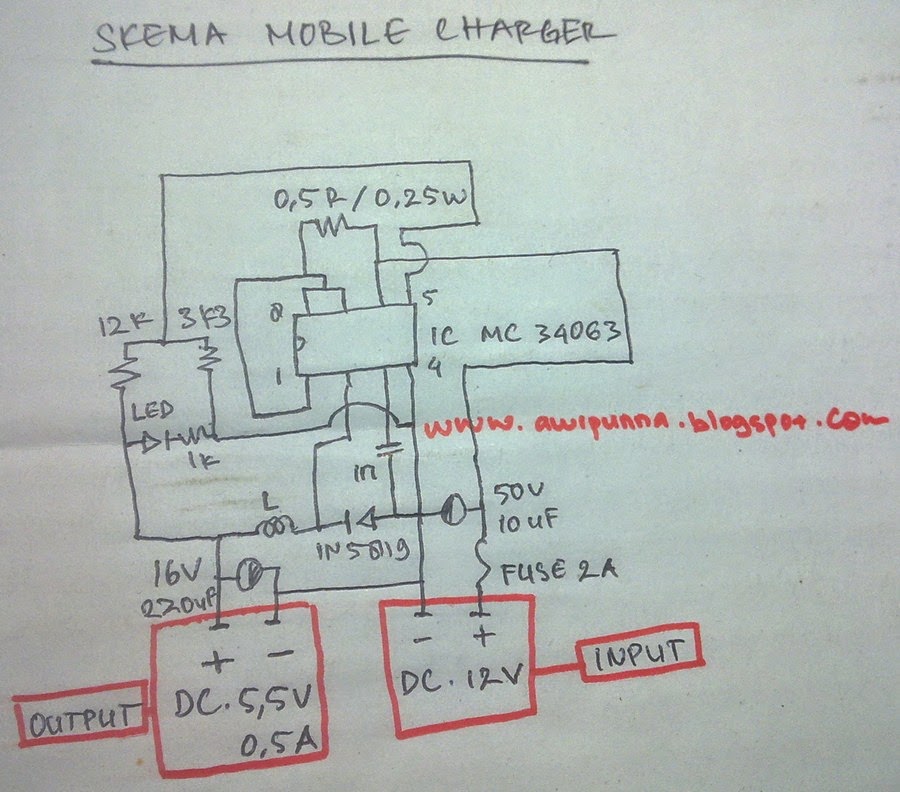 SKEMA MOBILE CHARGER
0,5R / 0,25W
12K 3K3
8
5
IC MC 34063
1
4
LED
1K
www.awipunna.blogspot.com
1n
L
50V
10uF
1N5819
FUSE 2A
16V
220uF
+ -
- +
DC. 5,5V
0,5A
DC. 12V
INPUT
OUTPUT